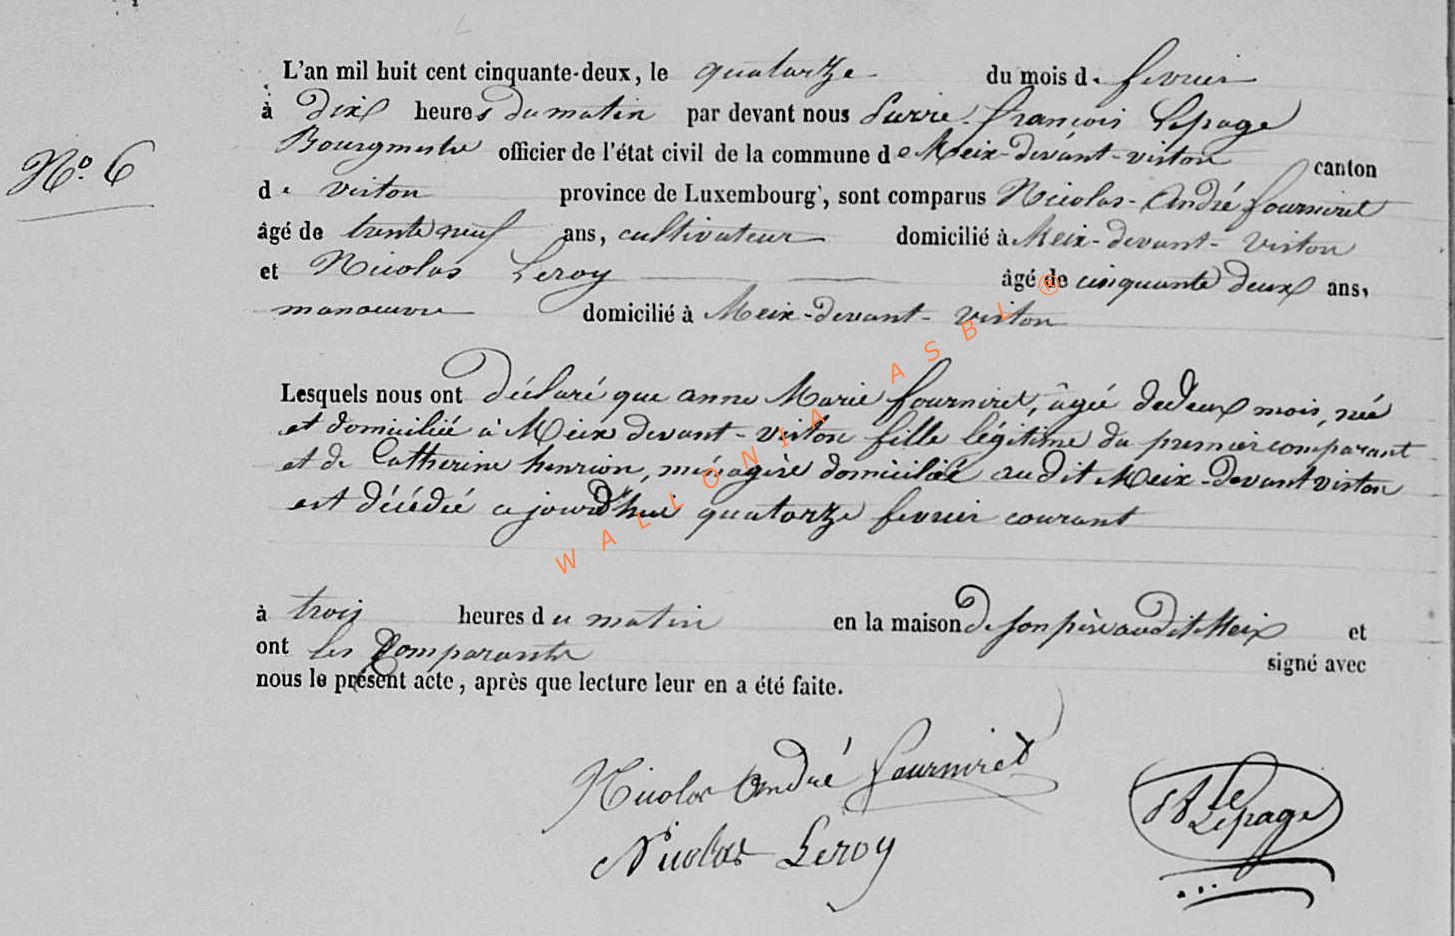 L'an mil huit cent cinquante-deux, le quatorze du mois de fevrier
à dix heures du matin par devant nous Pierre-françois Lepage
Bourgmestre officier de l'état civil de la commune de Meix-devant-virton canton
N° 6
de virton province de Luxembourg, sont comparus Nicolas-André fourniret
âgé de trente neuf ans, cultivateur domicilié à Meix-devant-virton
et Nicolas Leroy âgé de cinquante deux ans,
manoeuvre domicilié à Meix-devant-virton
Lesquels nous ont déclaré que anne Marie fourniret, âgée de deux mois, née
et domiciliée à Meix devant-virton fille légitime du premier comparant
et de Catherine henrion, ménagère domiciliée audit Meix-devant virton
est décédée cejourd'hui quatorze fevrier courant
à trois heures du matin en la maison de son père audit Meix et
ont les Comparants signé avec
nous le présent acte, après que lecture leur en a été faite.
Nicolas André fourniret
Lepage
Nicolas Leroy
WALLONIA ASBL ®